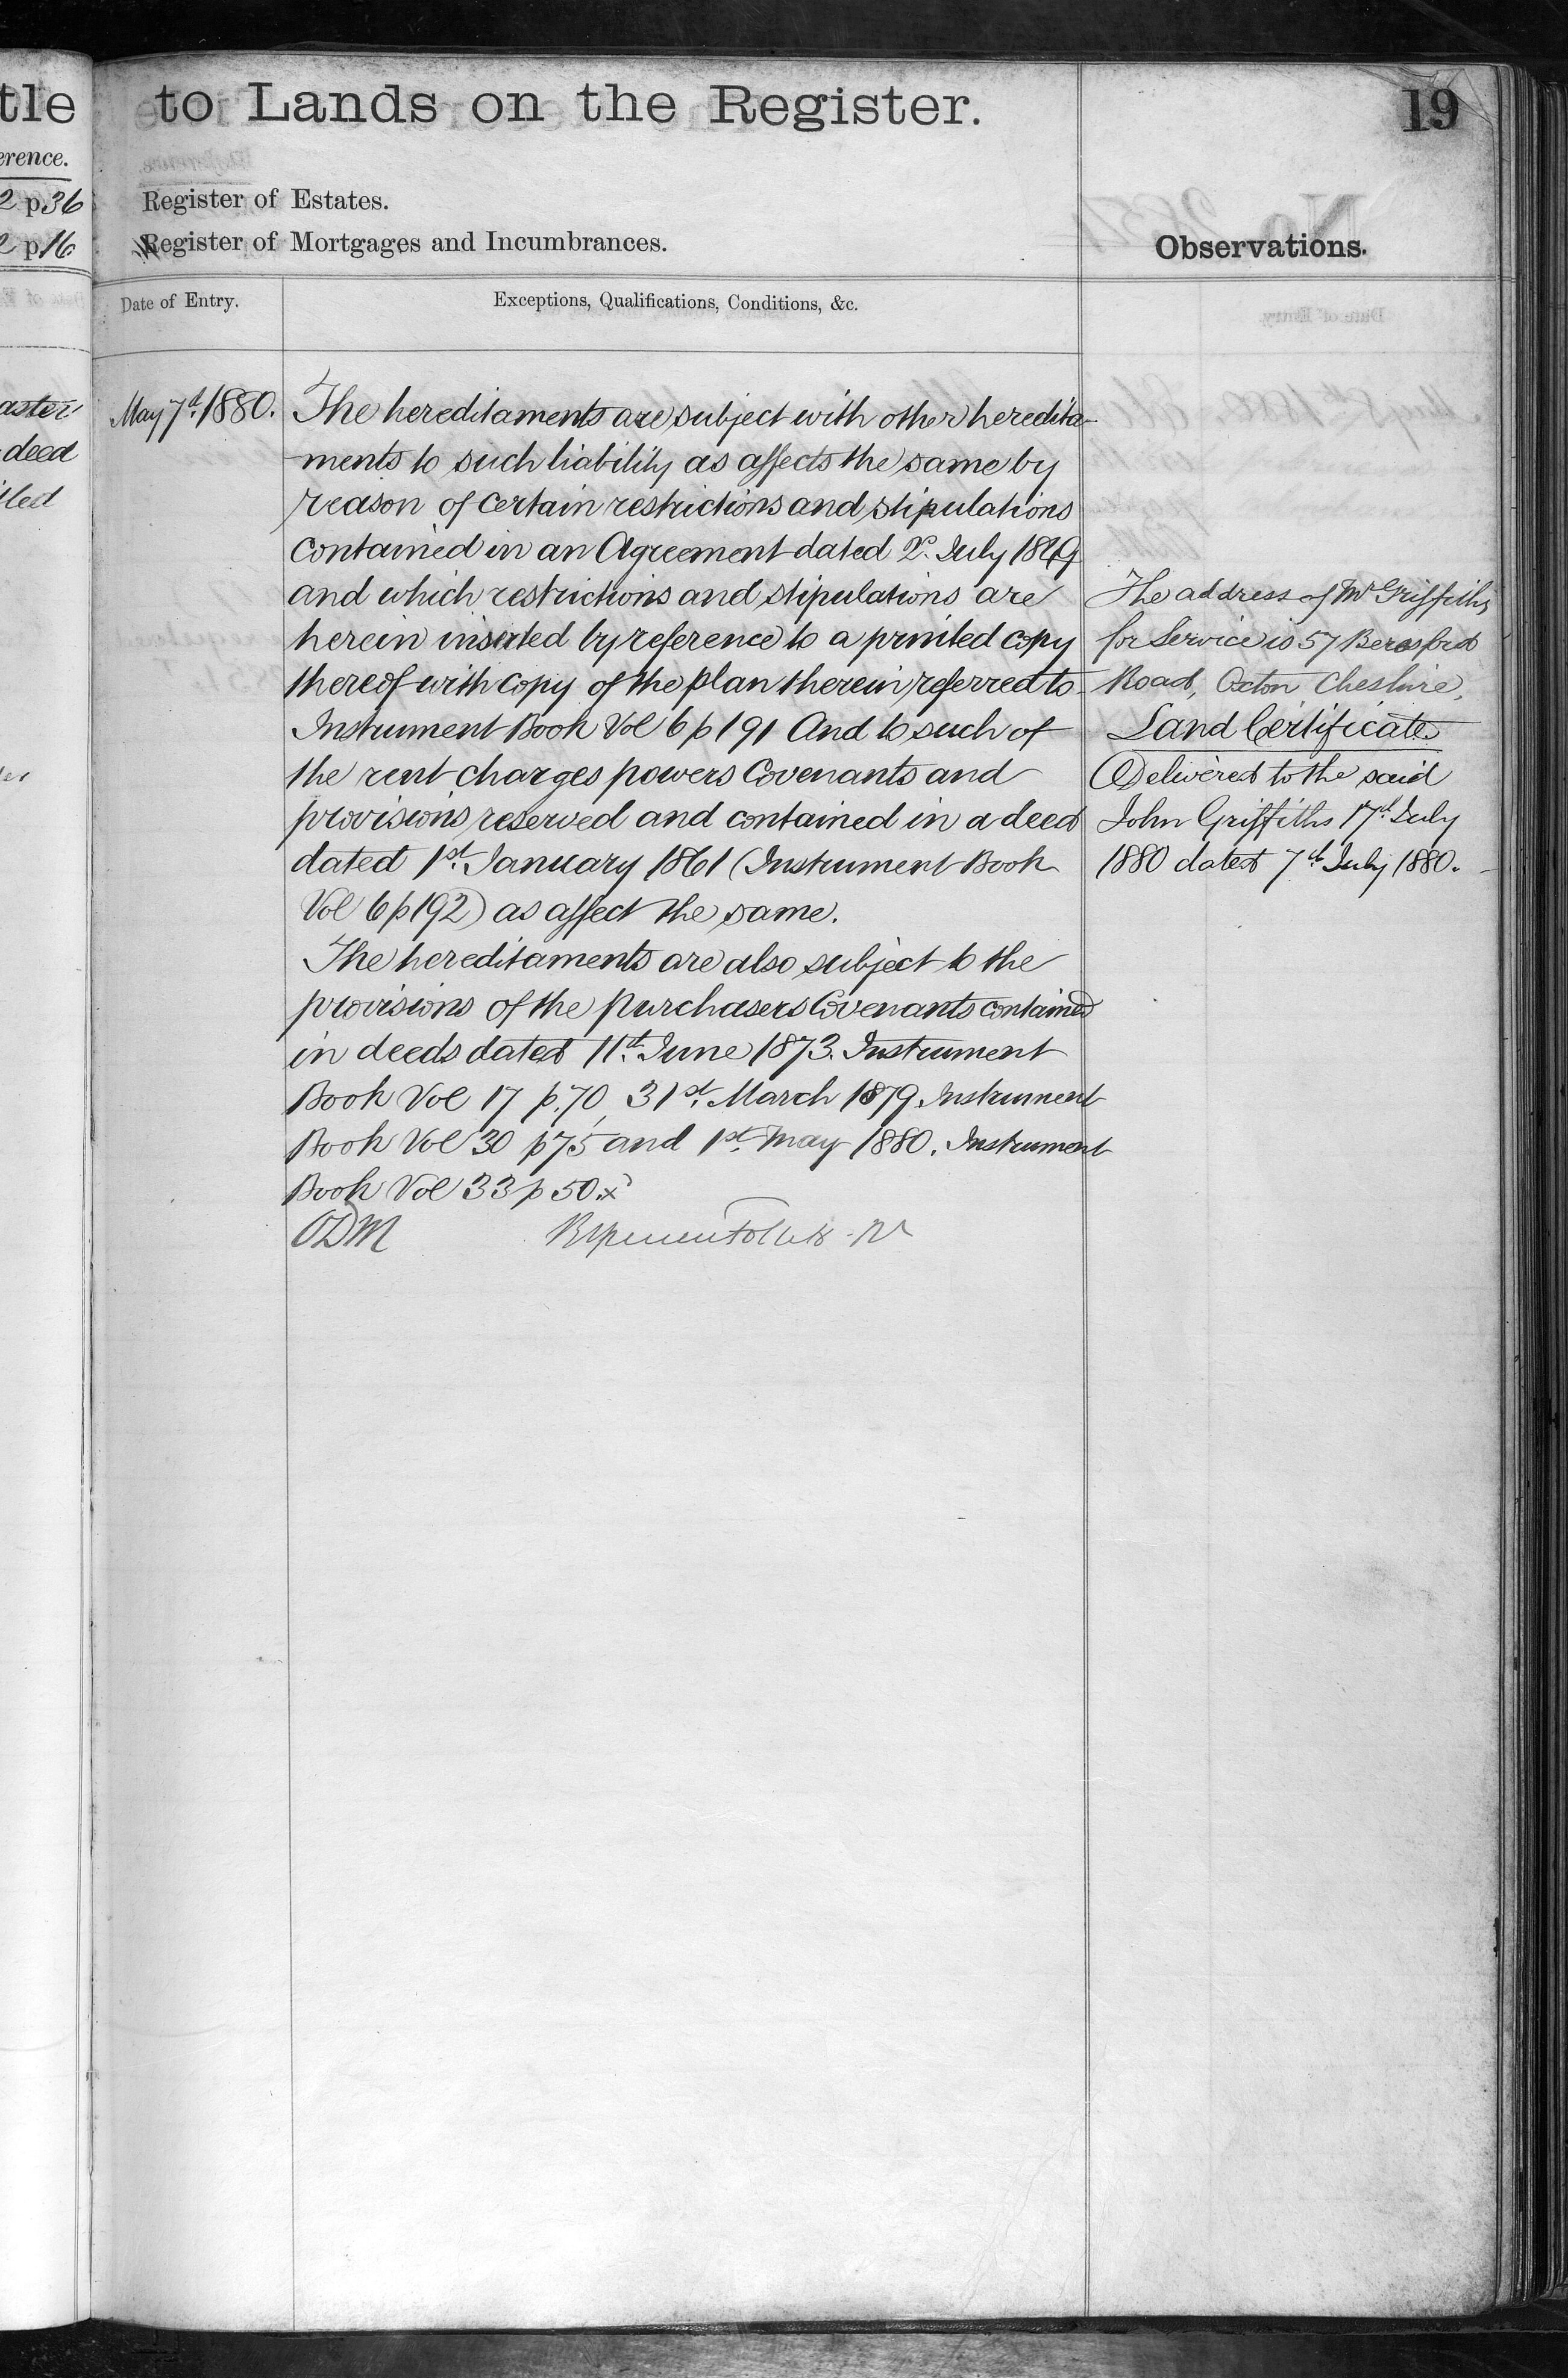 tle to Lands on the Register. 19
erence.
2 p36 Register of Estates.
p16 Register of Mortgages and Incumbrances.
Observations.
Date of Entry. Exceptions, Qualifications, Conditions, &c.
May 7th 1880. The hereditaments are subject with other heredita-
ments to such liability as affects the same by
reason of certain restrictions and stipulations
contained in an Agreement dated July
and which restrictions and stipulations are
herein inserted by reference to a printed copy
thereof with copy of the plan therein referred to
Instrument Book Vol 6 p 191 And to such of
the rent charges powers Covenants and
provisions reserved and contained in a deed
dated 1st. January 1861 (Instrument Book
Vol 6 p 192) as affect the same.
The hereditaments are also subject to the
provisions of the purchasers Covenants contained
in deeds dated 11th. June 1873. Instrument
Book Vol 17 p. 70, 31st. March 1879. Instrument
Book Vol 30 p 75 and 1st. May 1880. Instrument
Book Vol 33 p 50. x
ODM
The address of Mr Griffiths
for Service is 57 Beresford
Road, Oxton Cheshire,
Land Certificate
Delivered to the said
John Griffiths 17th July
1880 dated 7th July 1880.
deed